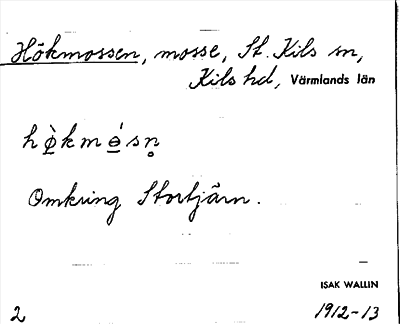 Hökmossen, mosse, St. Kils sn,
Kils hd, Värmlands län
hø̀kmo̠̍sn̥
Omkring Stortjärn.
ISAK WALLIN
2 1912-13